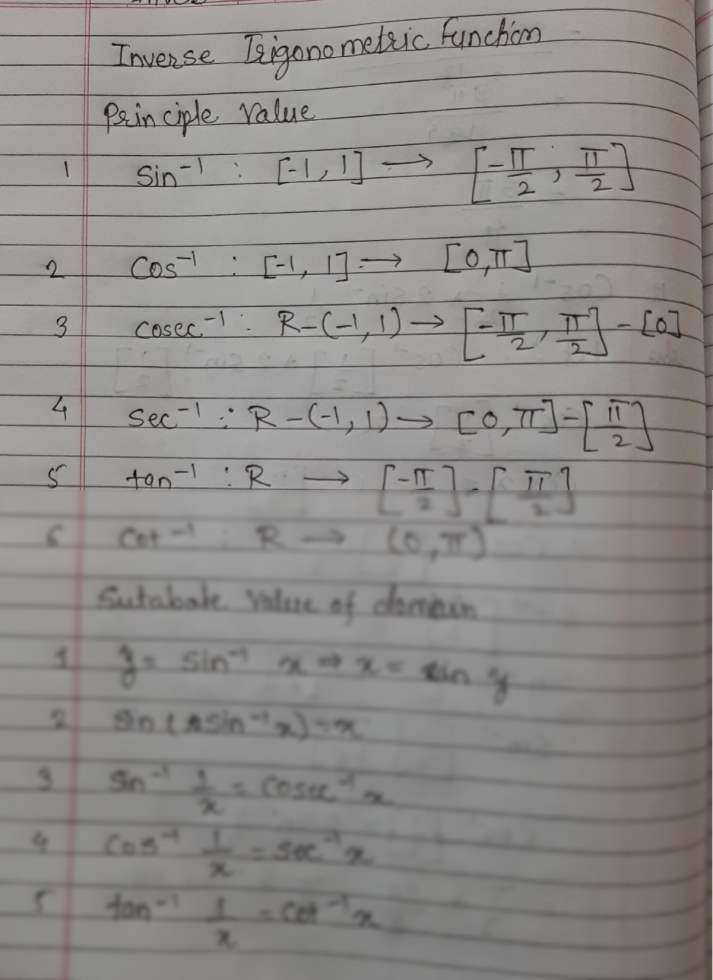 Inverse Trigonometric Function
Principle Value
1 Sin⁻¹ : [-1, 1] → [-π/2, π/2]
2 Cos⁻¹ : [-1, 1] → [0, π]
3 cosec⁻¹ : R-(-1, 1) → [-π/2, π/2] - [0]
4 Sec⁻¹ : R-(-1, 1) → [0, π] - [π/2]
5 tan⁻¹ : R → [-π/2] - [π/2]
6 Cot⁻¹ : R → (0, π)
Sutabale Value of domain
1 y = Sin⁻¹ x ⇒ x = sin y
2 Sin (sin⁻¹x) = x
3 Sin⁻¹ 1/x = Cosec⁻¹ x
4 Cos⁻¹ 1/x = Sec⁻¹ x
5 tan⁻¹ 1/x = Cot⁻¹ x